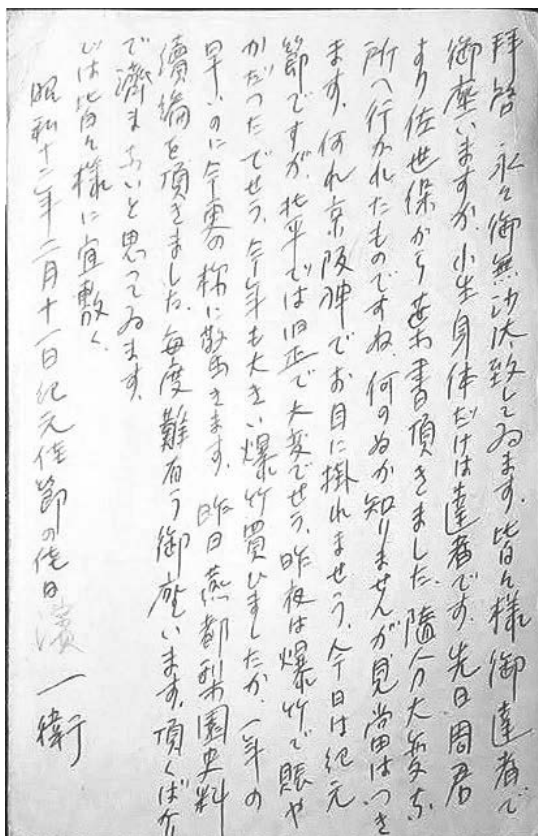 拝啓 永々御無沙汰致してゐます。皆々様御達者で
御座いますか、小生身体だけは達者です。先日周君
より佐世保から葉書頂きました。随分大変な
所へ行かれたものですね、何のゐか知りませんが見当はつき
ます。何れ京阪神でお目に掛れませう。今日は紀元
節ですが、北平では旧正で大変でせう。昨夜は爆竹で賑や
かだつたでせう。今年も大きい爆竹買ひましたか、一年の
早いのに今更の様に驚きます。昨日燕都梨園史料
續編を頂きました。毎度難有う御座います。頂くばかり
で濟まないと思つてゐます。
では皆々様に宜敷く、
昭和十二年二月十一日紀元佳節の佳日 濱一衛